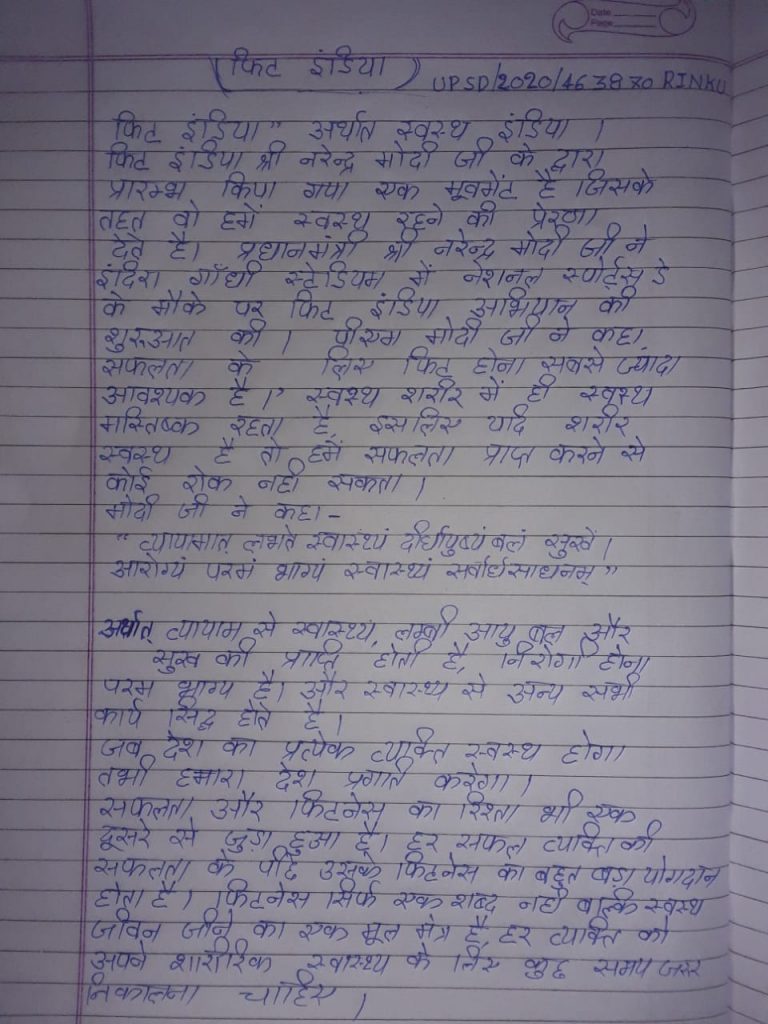 Date
Page
( फिट इंडिया ) UPSD/2020/46 38 70 RINKU
फिट इंडिया" अर्थात स्वस्थ इंडिया ।
फिट इंडिया श्री नरेन्द्र मोदी जी के द्वारा
प्रारम्भ किया गया एक मूवमेंट है जिसके
तहत वो हमें स्वस्थ रहने की प्रेरणा
देते है। प्रधानमंत्री श्री नरेन्द्र मोदी जी ने
इंदिरा गाँधी स्टेडियम में नेशनल स्पोर्ट्स डे
के मौके पर फिट इंडिया अभियान की
शुरुआत की । पीएम मोदी जी ने कहा
सफलता के लिए फिट होना सबसे ज्यादा
आवश्यक है ।" स्वस्थ शरीर में ही स्वस्थ
मस्तिष्क रहता है, इसलिए यदि शरीर
स्वस्थ है तो हमें सफलता प्राप्त करने से
कोई रोक नही सकता ।
मोदी जी ने कहा -
" व्यायामात् लभते स्वास्थ्यं दीर्घायुष्यं बलं सुखं ।
आरोग्यं परमं भाग्यं स्वास्थ्यं सर्वार्थसाधनम् "
अर्थात् व्यायाम से स्वास्थ्य, लम्बी आयु बल और
सुख की प्राप्ति होती है, निरोगी होना
परम भाग्य है। और स्वास्थ्य से अन्य सभी
कार्य सिद्ध होते है ।
जब देश का प्रत्येक व्यक्ति स्वस्थ होगा
तभी हमारा देश प्रगति करेगा ।
सफलता और फिटनेस का रिश्ता भी एक
दूसरे से जुड़ा हुआ है। हर सफल व्यक्ति की
सफलता के पीछे उसके फिटनेस का बहुत बड़ा योगदान
होता है । फिटनेस सिर्फ एक शब्द नही बल्कि स्वस्थ
जीवन जीने का एक मूल मंत्र है, हर व्यक्ति को
अपने शारीरिक स्वास्थ्य के लिए कुछ समय जरूर
निकालना चाहिए ।